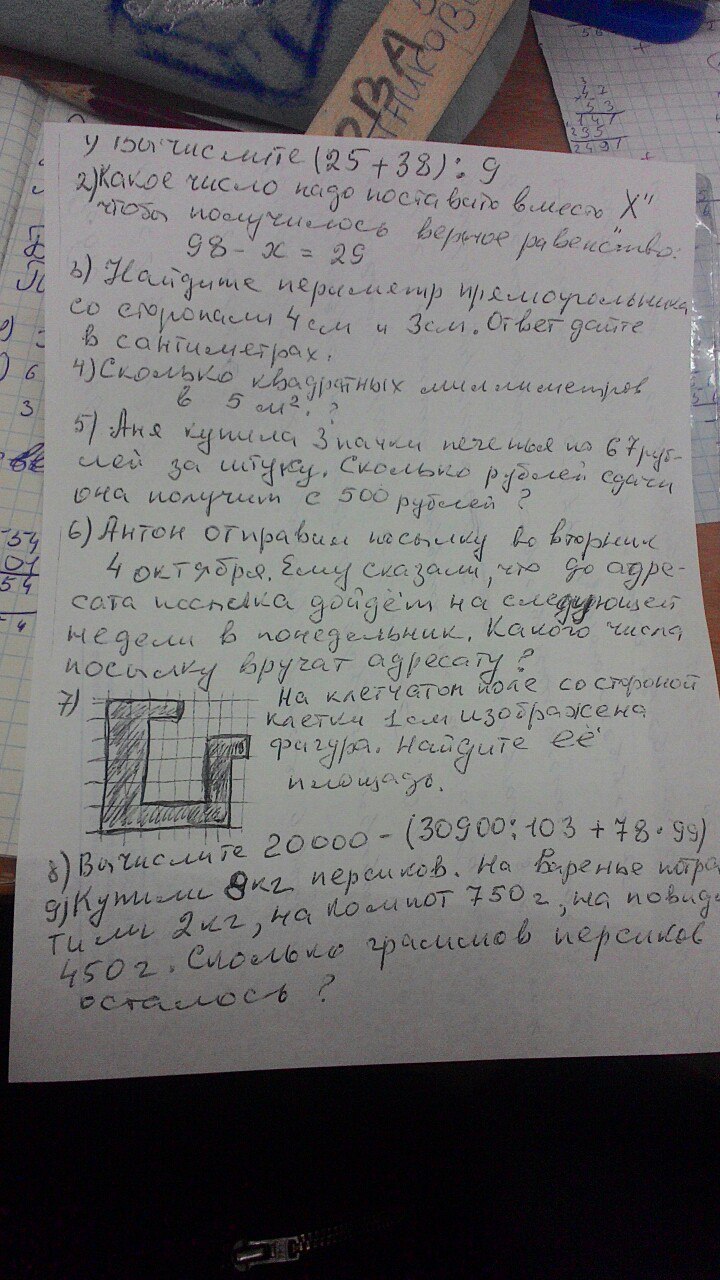 ОВА
ТНИКОВ
1) Вычислите (25 + 38) : 9
2) Какое число надо поставить вместо X"
чтобы получилось верное равенство:
98 - x = 29
3) Найдите периметр прямоугольника
со сторонами 4 см и 3 см. Ответ дайте
в сантиметрах.
4) Сколько квадратных миллиметров
в 5 м². ?
5) Аня купила 3 пачки печенья по 67 руб-
лей за штуку. Сколько рублей сдачи
она получит с 500 рублей ?
6) Антон отправил посылку во вторник
4 октября. Ему сказали, что до адре-
сата посылка дойдём на следующей
недели в понедельник. Какого числа
посылку вручат адресату ?
7) На клетчатом поле со стороной
клетки 1 см изображена
фигура. Найдите её
площадь.
8) Вычислите 20000 - (30900 : 103 + 78 · 99)
9) Купили 8 кг персиков. На варенье потра
тили 2 кг, на компот 750 г, на повид
450 г. Сколько граммов персиков
осталось ?
47
53
141
235
2491